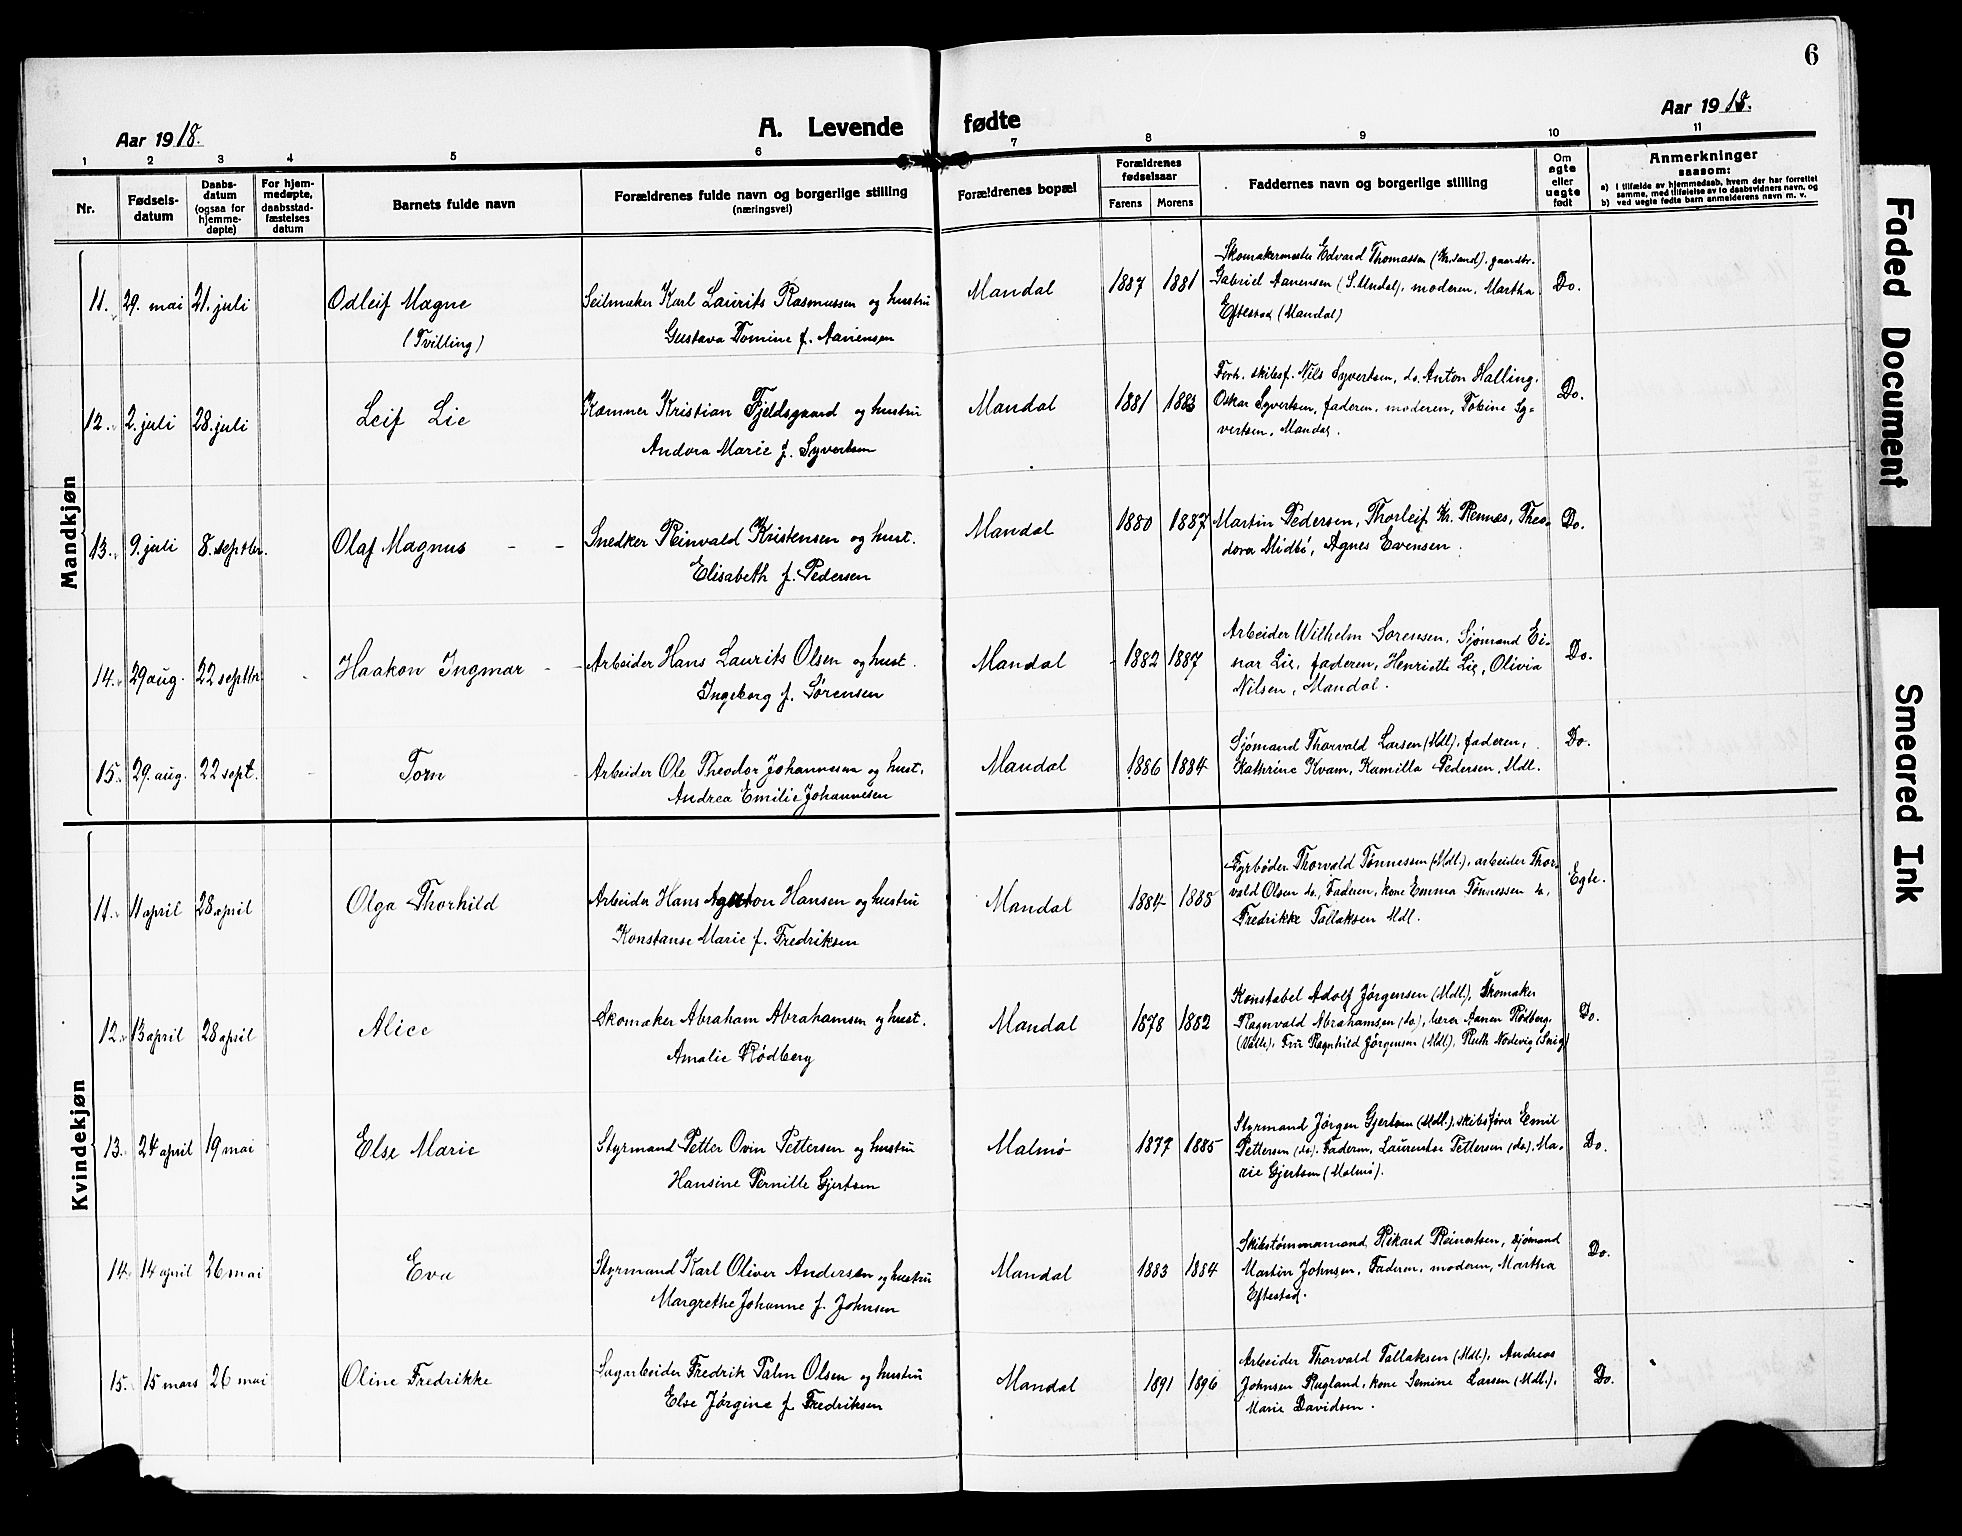 6
Aar 1918.
A. Levende fødte
Aar 1918.
1 2 3 4 5 6 7 8 9 10 11
Nr.
Fødsels-
datum
Daabs-
datum
(ogsaa for
hjemme-
døpte)
For hjem-
medøpte,
daabsstad-
fæstelses
datum
Barnets fulde navn
Forældrenes fulde navn og borgerlige stilling
(næringsvei)
Forældrenes bopæl
Forældrenes
fødselsaar
Farens
Morens
Faddernes navn og borgerlige stilling
Om
ægte
eller
uægte
født
Anmerkninger
saasom:
a) I tilfælde av hjemmedaab, hvem der har forrettet
samme, med tilføielse av to daabsvidners navn, og
b) ved uegte fødte barn anmelderens navn m. v.
Mandkjøn
11. 29. mai 21. juli
Odleif Magne
(Tvilling)
Seilmaker Karl Laurits Rasmussen og hustru
Gustava Tomine f. Aanensen
Mandal 1887 1881
Skomakermester Edvard Thomassen (Kr.sand), gaardbr.
Gabriel Aanensen (S. Undal), moderen, Martha
Eftestad (Mandal)
Do.
12. 2. juli 28. juli
Leif Lie
Kæmner Kristian Fjeldsgaard og hustru
Andora Marie f. Syvertsen
Mandal 1881 1883
Forh. skibsf. Nils Syvertsen, do. Anton Halling,
Oskar Syvertsen, faderen, moderen, Tobine Sy-
vertsen, Mandal.
Do.
13. 9. juli 8. septbr.
Olaf Magnus - -
Snedker Reinvald Kristensen og hust.
Elisabeth f. Pedersen
Mandal 1880 1887
Martin Pedersen, Thorleif Kr. Rennes, Theo-
dora Midbø, Agnes Evensen.
Do.
14. 29 aug. 22 septbr
Haakon Ingmar - -
Arbeider Hans Laurits Olsen og hust.
Ingeborg f. Sørensen
Mandal 1882 1887
Arbeider Wilhelm Sorensen, Sjømand Ei-
nar Lie, faderen, Henriette Lie, Olivia
Nilsen, Mandal.
Do.
15. 29. aug. 22 sept.
Torn
Arbeider Ole Theodor Johannesen og hust.
Andrea Emilie Johannesen
Mandal 1886 1884
Sjømand Thorvald Larsen (Mdl), faderen,
Kathrine Kvam, Kamilla Pedersen, Mdl.
Do.
Kvindekjøn
11. 11 april 28 april
Olga Thorhild
Arbeider Hans Hansen og hustru
Konstanse Marie f. Fredriksen
Mandal 1884 1885
Fyrbøder Thorvald Tønnessen (Mdl.), arbeider Thor-
vald Olsen do, Faderen, kone Emma Tønnessen do,
Fredrikke Tallaksen Mdl.
Egte.
12. 13 april 28 april
Alice
Skomaker Abraham Abrahamsen og hust.
Amalie Rødberg
Mandal 1878 1882
Konstabel Adolf Jørgensen (Mdl), Skomaker
Ragnvald Abrahamsen (do), lærer Aanen Rødberg,
(Valle), Fru Ragnhild Jørgensen (Mdl), Ruth Nodevig (Snig)
Do.
13. 24 april 19 mai
Else Marie
Styrmand Petter Ovin Pettersen og hustru
Hansine Pernille Gjertsen
Malmø 1877 1885
Styrmand Jørgen Gjertsen (Mdl.), skibsfører Emil
Pettersen (do), Faderen, Laurentse Pettersen (do), Ma-
rie Gjertsen (Malmø).
Do.
14. 14 april 26 mai
Eva
Styrmand Karl Oliver Andersen og hustru
Margrethe Johanne f. Johnsen
Mandal 1883 1884
Skibstømmermand Rikard Reinertsen, sjømand
Martin Johnsen, Faderen, moderen, Martha
Eftestad.
Do.
15. 15 mars 26 mai
Oline Fredrikke
Sagarbeider Fredrik Palm Olsen og hustru
Else Jørgine f. Fredriksen
Mandal 1891 1896
Arbeider Thorvald Tallaksen (Mdl), Andreas
Johnsen Rugland, kone Semine Larsen (Mdl.),
Marie Davidsen.
Do.
Faded Document
Smeared Ink